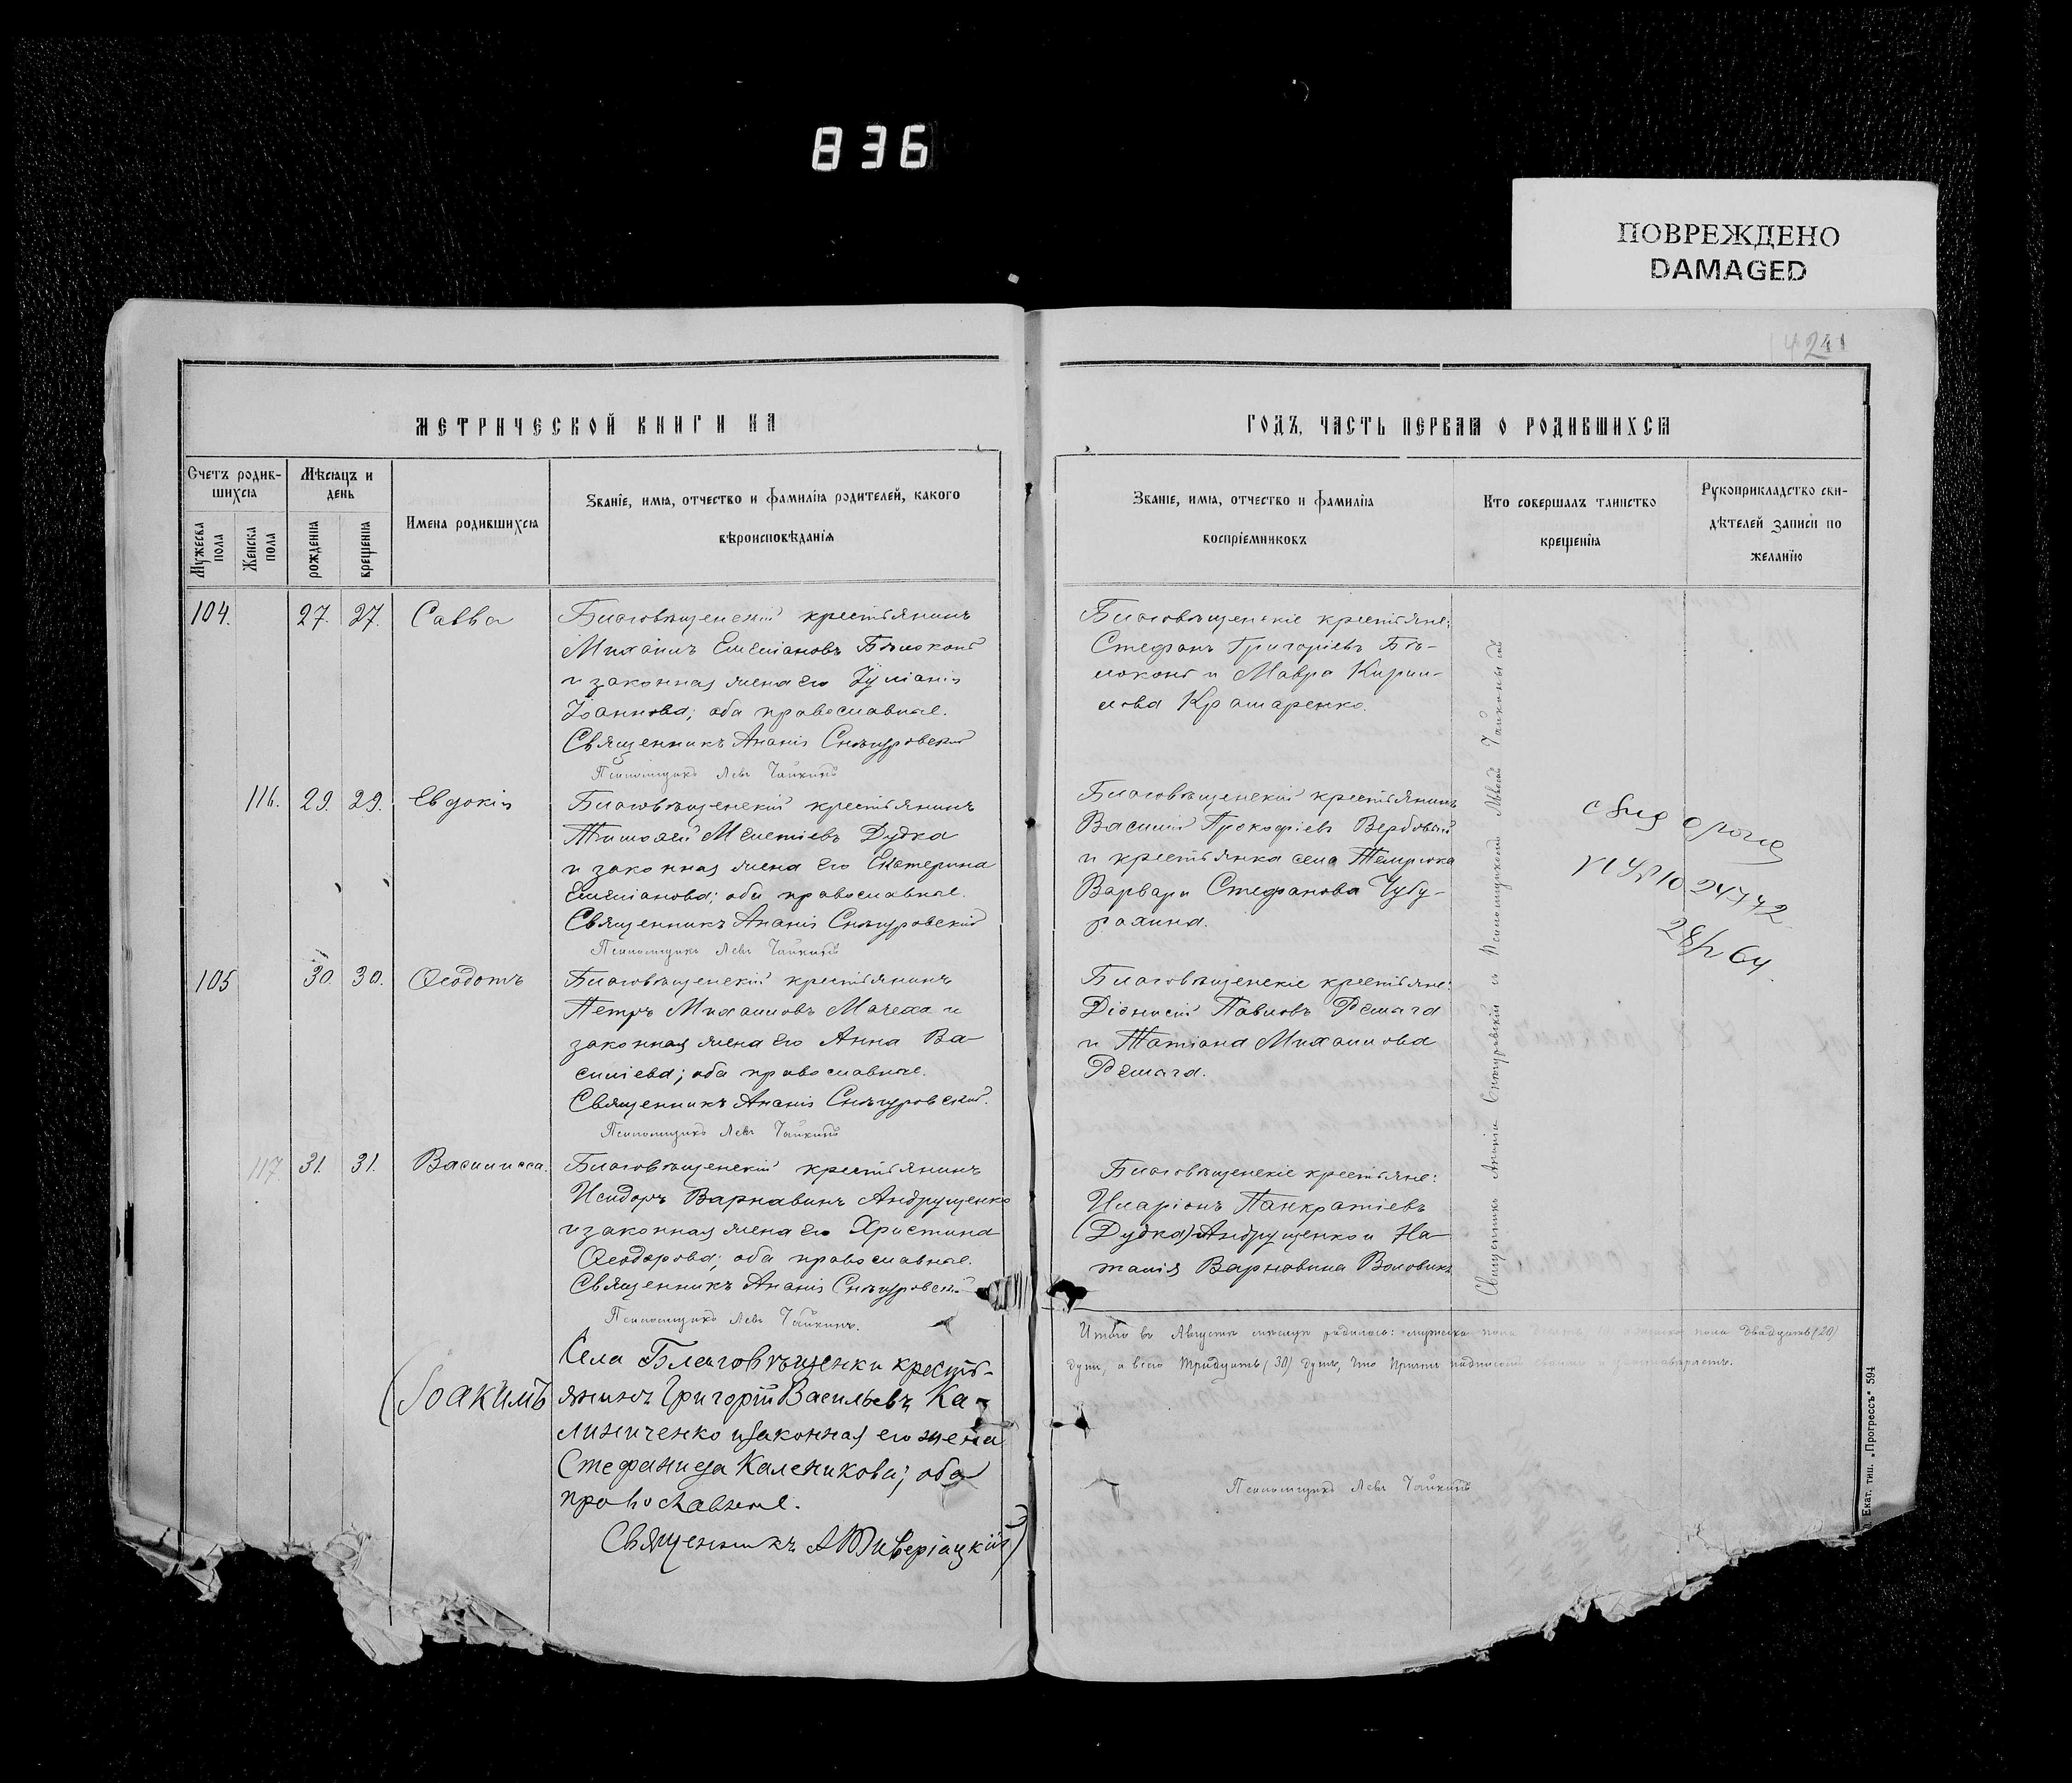 836
ПОВРЕЖДЕНО
DAMAGED
МЕТРИЧЕСКОЙ КНИГИ НА
Счетъ родив-
шихся
Мужеска
пола
Женска
пола
Мѣсяцъ и
день
рожденія
крещенія
Имена родившихся
Званіе, имя, отчество и фамилія родителей, какого
вѣроисповѣданія
104.
27.
27.
Савва
Благовѣщенскій крестьянинъ
Михаилъ Емеліановъ Бѣлоконь
и законная жена его Іуліанія
Іоаннова; оба православные.
Священникъ Ананія Снѣгуровскій
Псаломщикъ Левъ Чайкинъ
116.
29.
29.
Евдокія
Благовѣщенскій крестьянинъ
Тимофей Мелетіевъ Дудка
и законная жена его Екатерина
Емеліанова; оба православные.
Священникъ Ананія Снѣгуровскій
Псаломщикъ Левъ Чайкинъ
105
30.
30.
Ѳеодотъ
Благовѣщенскій крестьянинъ
Петръ Михаиловъ Мачеха и
законная жена его Анна Ва-
силіева; оба православные.
Священникъ Ананія Снѣгуровскій.
Псаломщикъ Левъ Чайкинъ
117
31.
31.
Василисса.
Благовѣщенскій крестьянинъ
Исидоръ Варнавинъ Андрущенко
и законная жена его Христина
Ѳеодорова; оба православные.
Священникъ Ананія Снѣгуровскій
Псаломщикъ Левъ Чайкинъ.
(Іоакимъ
Села Благовѣщенки кресть-
янинъ Григорій Васильевъ Ка-
линиченко и законная его жена
Стефанида Каленикова; оба
православные.
Священникъ А Тиверіацкій)
ГОДЪ, ЧАСТЬ ПЕРВАЯ О РОДИВШИХСЯ
Званіе, имя, отчество и фамилія
воспріемниковъ
Кто совершалъ таинство
крещенія
Рукоприкладство сви-
дѣтелей записи по
желанію
Благовѣщенскіе крестьяне:
Стефанъ Григоріевъ Бѣ-
локонь и Мавра Кирил-
лова Крамаренко.
Благовѣщенскій крестьянинъ
Василій Прокофіевъ Вербовый
и крестьянка села Темрюка
Варвара Стефанова Чубу-
рахина.
Благовѣщенскіе крестьяне:
Діонисій Павловъ Ремага
и Татіана Михаилова
Ремага.
Благовѣщенскіе крестьяне:
Иларіонъ Панкратіевъ
(Дудка) Андрущенко и На-
талія Варнавина Воловикъ
Священникъ Ананія Снѣгуровскій съ Псаломщикомъ Львомъ Чайкинымъ
24742
28/2 64.
Итого въ Августѣ мѣсяцѣ родилось: мужеска пола женска пола двадцать (20)
душъ, а всего тридцать (30) душъ, что причтъ подписомъ
Псаломщикъ Левъ Чайкинъ
Екат. тип. „Прогрессъ" 594